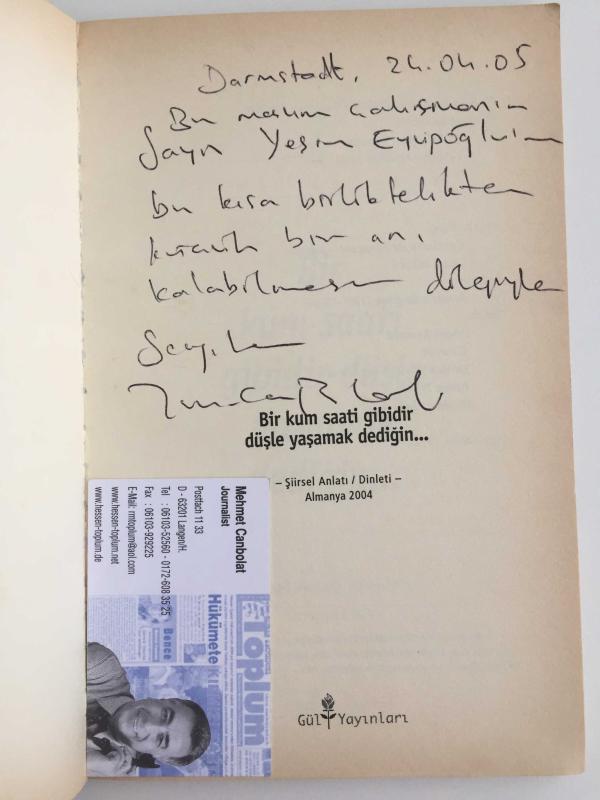 Darmstadt, 24.04.05
Bu çalışmanın
Sayın Yeşim Eyüpoğlu'na
bu kısa birliktelikten
bir anı
kalabilmesi dileğiyle
Bir kum saati gibidir
düşle yaşamak dediğin...
– Şiirsel Anlatı / Dinleti –
Almanya 2004
Mehmet Canbolat
Journalist
Postfach 11 33
D - 63201 Langen/H.
Tel : 06103-52560 - 0172-608 35 25
Fax : 06103-929225
E-Mail: rmtoplum@aol.com
www.hessen-toplum.net
www.hessen-toplum.de
Toplum
Hükümete
Bence
Gül Yayınları